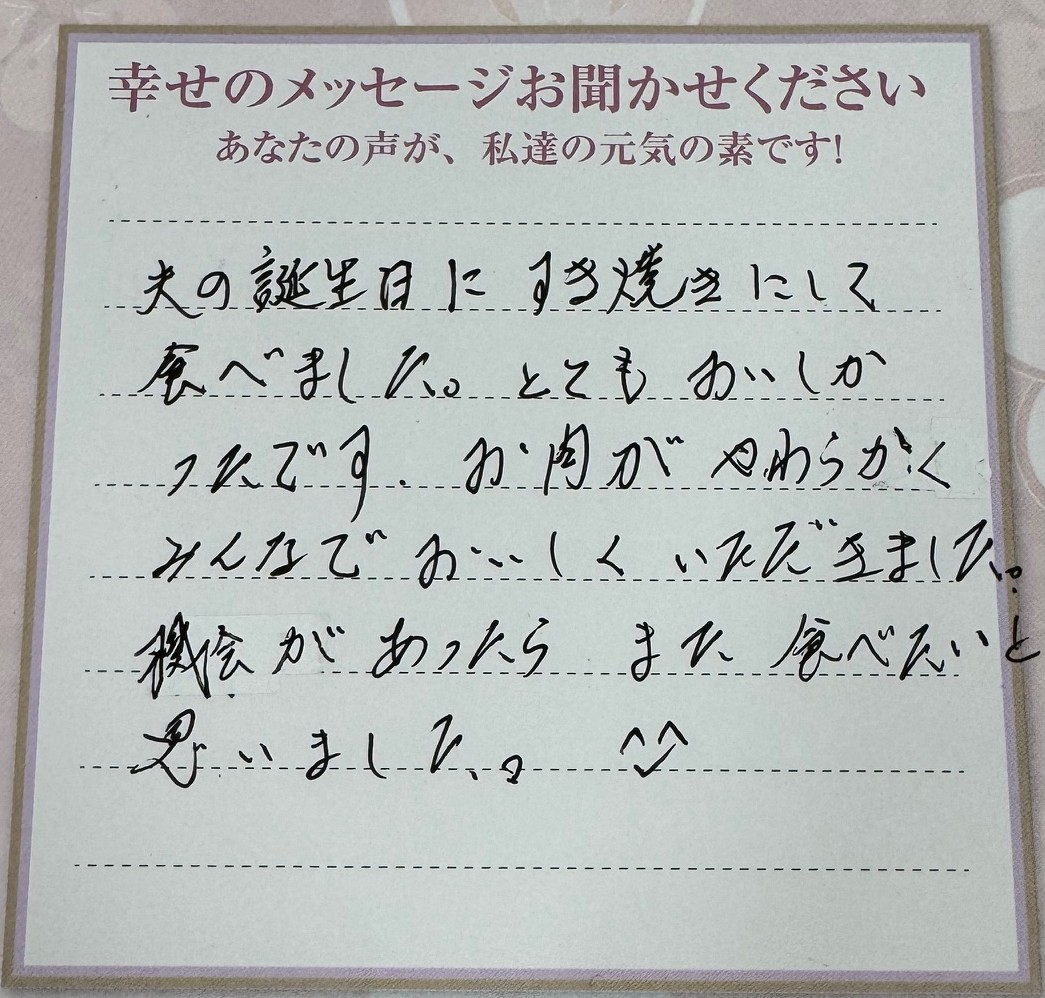 幸せのメッセージお聞かせください
あなたの声が、私達の元気の素です!
夫の誕生日に すき焼きにして
食べました。とても おいしか
ったです. お肉が やわらかく
みんなで おいしく いただきました。
機会が あったら また 食べたいと
思いました。 ^^